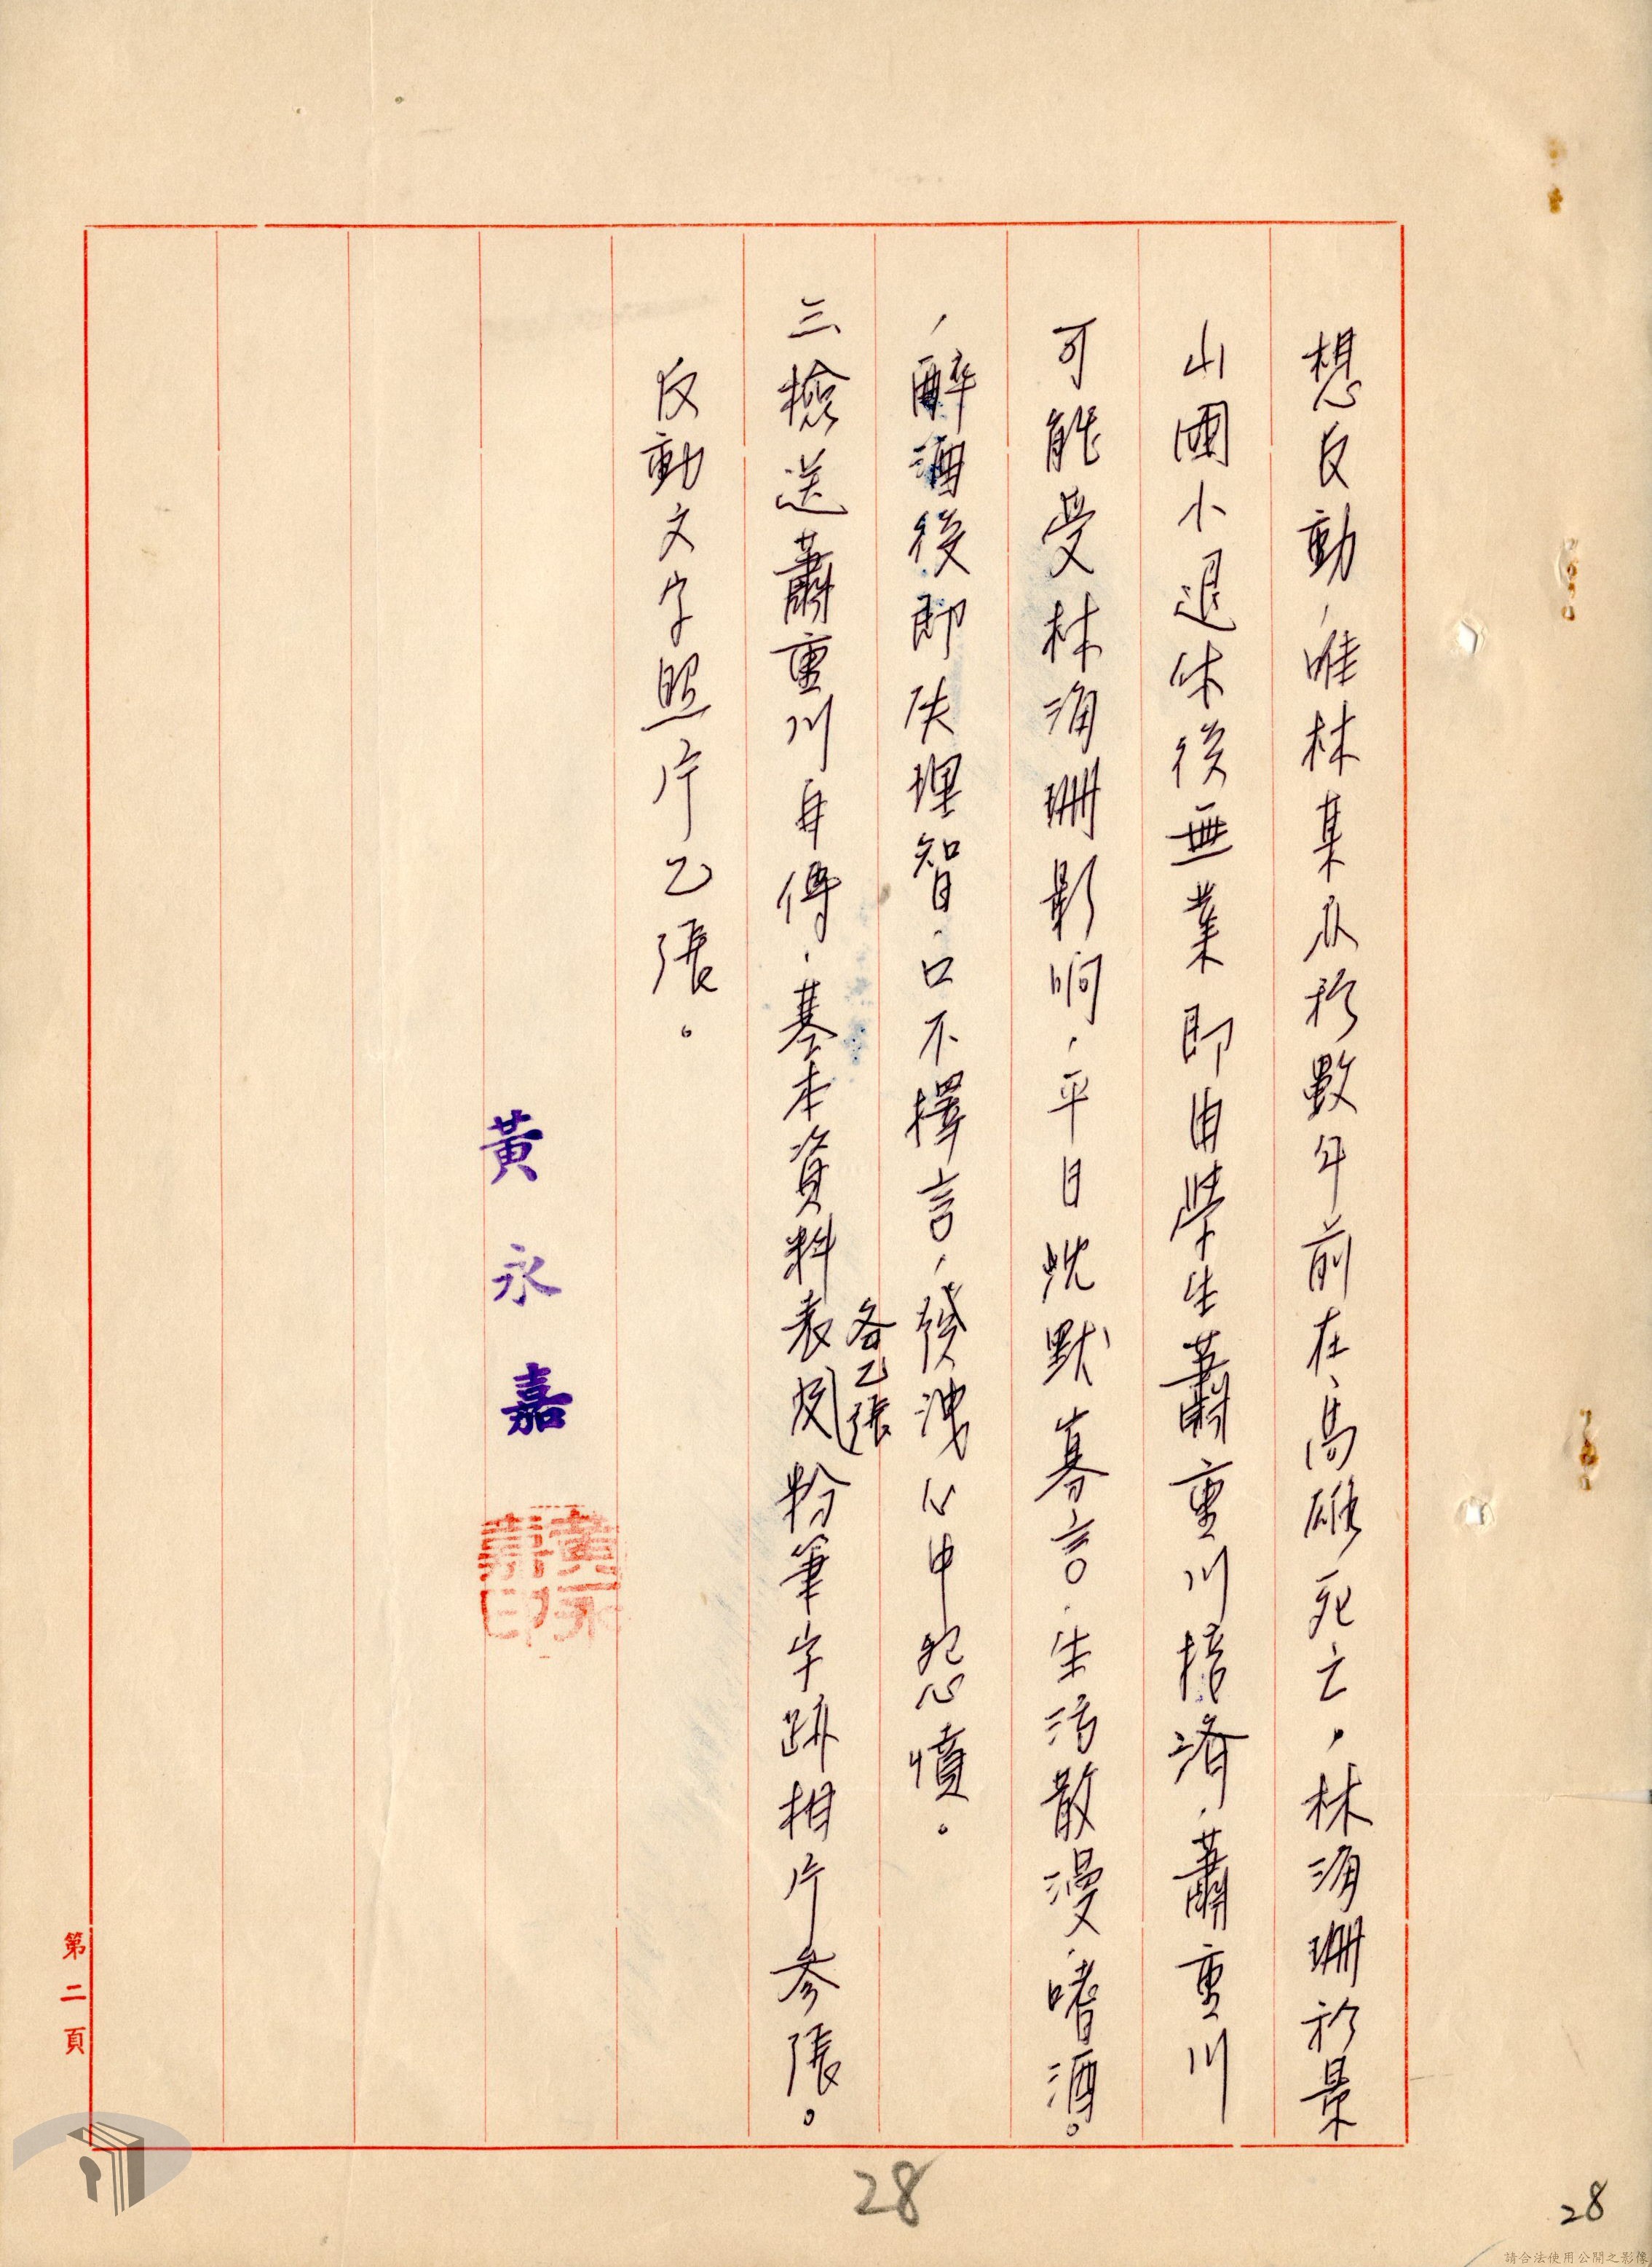 想反動，唯林某亦於數年前在高雄死亡，林海珊於景
山國小退休後無業即由學生蕭重川接濟，蕭重川
可能受林海珊影响，平日沈默寡言，生活散漫，嗜酒。
，醉酒後即失理智，口不擇言，發洩心中怨憤。
三檢送蕭重川自傳，基本資料表各乙張及粉筆字跡相片參張。
反動文字照片乙張。
黃永嘉
黃永嘉印
第二頁
28
28
請合法使用公開之影像